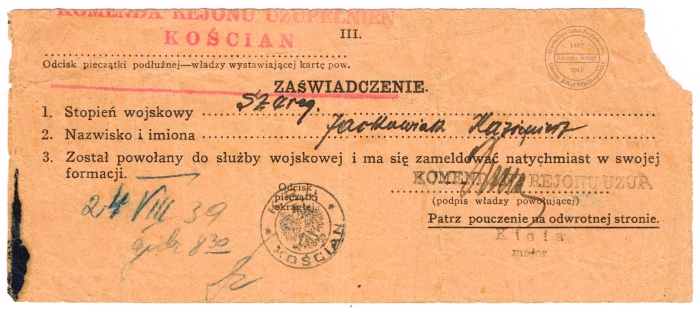 KOMENDA REJONU UZUPEŁNIEŃ
KOŚCIAN
III.
Odcisk pieczątki podłużnej—władzy wystawiającej kartę pow.
ZAŚWIADCZENIE.
1. Stopień wojskowy Szereg.
2. Nazwisko i imiona Jackowiak Kazimierz
3. Został powołany do służby wojskowej i ma się zameldować natychmiast w swojej
formacji.
KOMENDA REJONU UZUP.
(podpis władzy powołującej)
Patrz pouczenie na odwrotnej stronie.
major
Odcisk
pieczątki
okrągłej
KOŚCIAN
24 VIII 39
godz 8 30